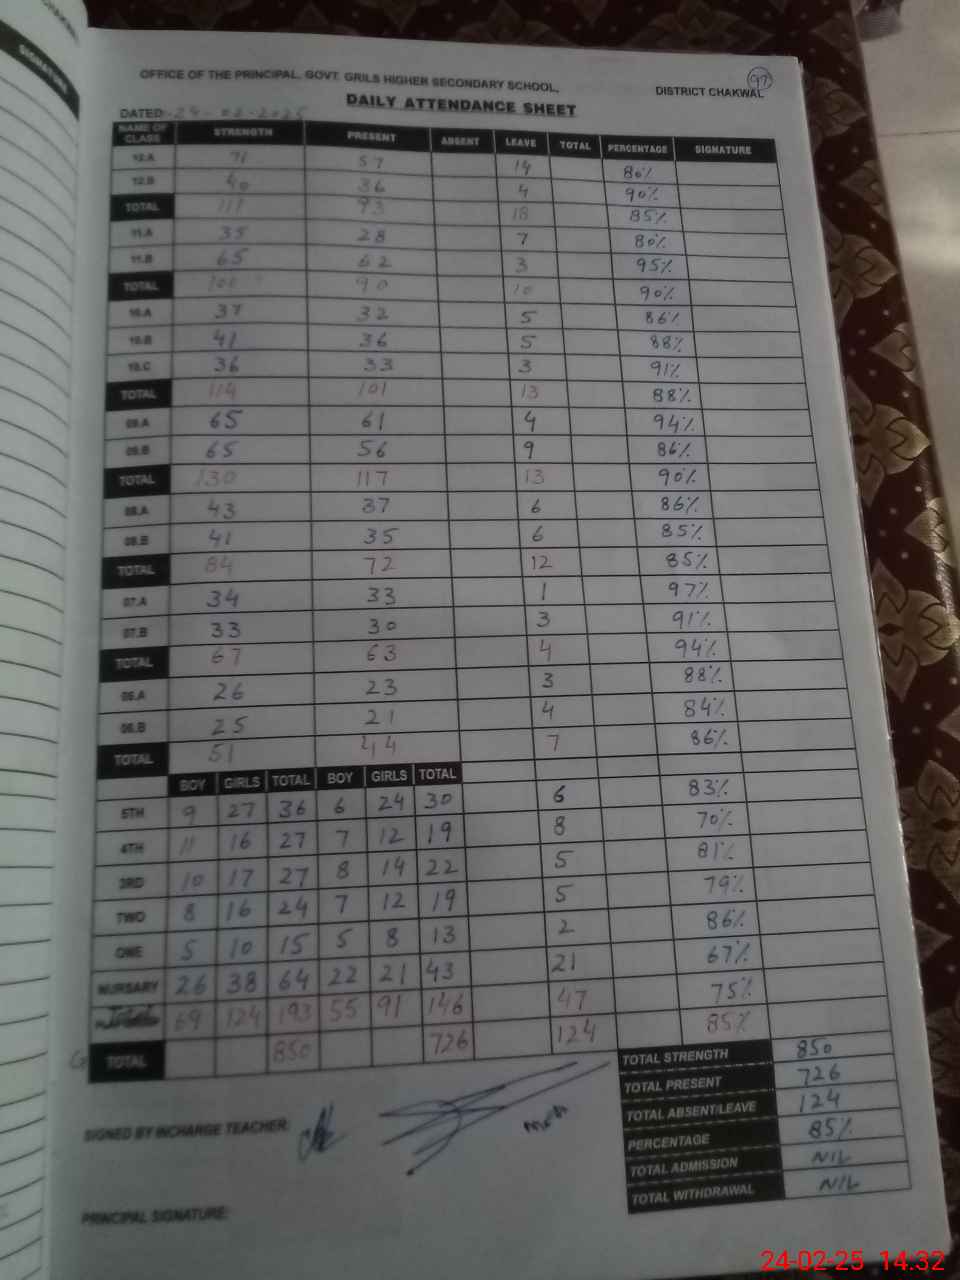 SIGNATURE
97
OFFICE OF THE PRINCIPAL, GOVT. GRILS HIGHER SECONDARY SCHOOL, DISTRICT CHAKWAL
DAILY ATTENDANCE SHEET
DATED: 24-02-2025
NAME OF CLASS STRENGTH PRESENT ABSENT LEAVE TOTAL PERCENTAGE SIGNATURE
12.A 71 57 14 80%
12.B 40 36 4 90%
TOTAL 111 93 18 85%
11.A 35 28 7 80%
11.B 65 62 3 95%
TOTAL 100 90 10 90%
10.A 37 32 5 86%
10.B 41 36 5 88%
10.C 36 33 3 91%
TOTAL 114 101 13 88%
09.A 65 61 4 94%
09.B 65 56 9 86%
TOTAL 130 117 13 90%
08.A 43 37 6 86%
08.B 41 35 6 85%
TOTAL 84 72 12 85%
07.A 34 33 1 97%
07.B 33 30 3 91%
TOTAL 67 63 4 94%
06.A 26 23 3 88%
06.B 25 21 4 84%
TOTAL 51 44 7 86%
BOY GIRLS TOTAL BOY GIRLS TOTAL
5TH 9 27 36 6 24 30 6 83%
4TH 11 16 27 7 12 19 8 70%
3RD 10 17 27 8 14 22 5 81%
TWO 8 16 24 7 12 19 5 79%
ONE 5 10 15 5 8 13 2 86%
NURSARY 26 38 64 22 21 43 21 67%
Total 69 124 193 55 91 146 47 75%
G TOTAL 850 726 124 85%
TOTAL STRENGTH 850
TOTAL PRESENT 726
TOTAL ABSENT/LEAVE 124
PERCENTAGE 85%
TOTAL ADMISSION NIL
TOTAL WITHDRAWAL NIL
SIGNED BY INCHARGE TEACHER:
PRINCIPAL SIGNATURE:
24-02-25 14:32